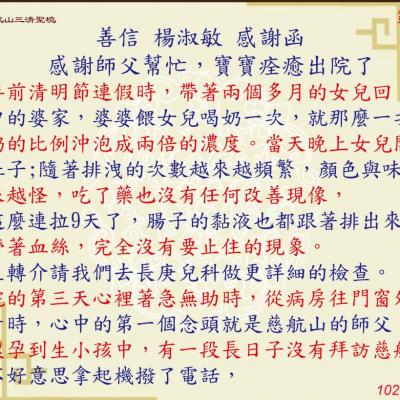 航山三清聖境
善信 楊淑敏 感謝函
感謝師父幫忙，寶寶痊癒出院了
年前清明節連假時，帶著兩個多月的女兒回
中的婆家，婆婆餵女兒喝奶一次，就那麼一
奶的比例沖泡成兩倍的濃度。當天晚上女兒
肚子;隨著排洩的次數越來越頻繁，顏色與味
來越怪，吃了藥也沒有任何改善現像，
這麼連拉9天了，腸子的黏液也都跟著排出來
帶著血絲，完全沒有要止住的現象。
生轉介請我們去長庚兒科做更詳細的檢查。
院的第三天心裡著急無助時，從病房往門窗外
時，心中的第一個念頭就是慈航山的師父
懷孕到生小孩中，有一段長日子沒有拜訪慈
不好意思拿起機撥了電話，
102